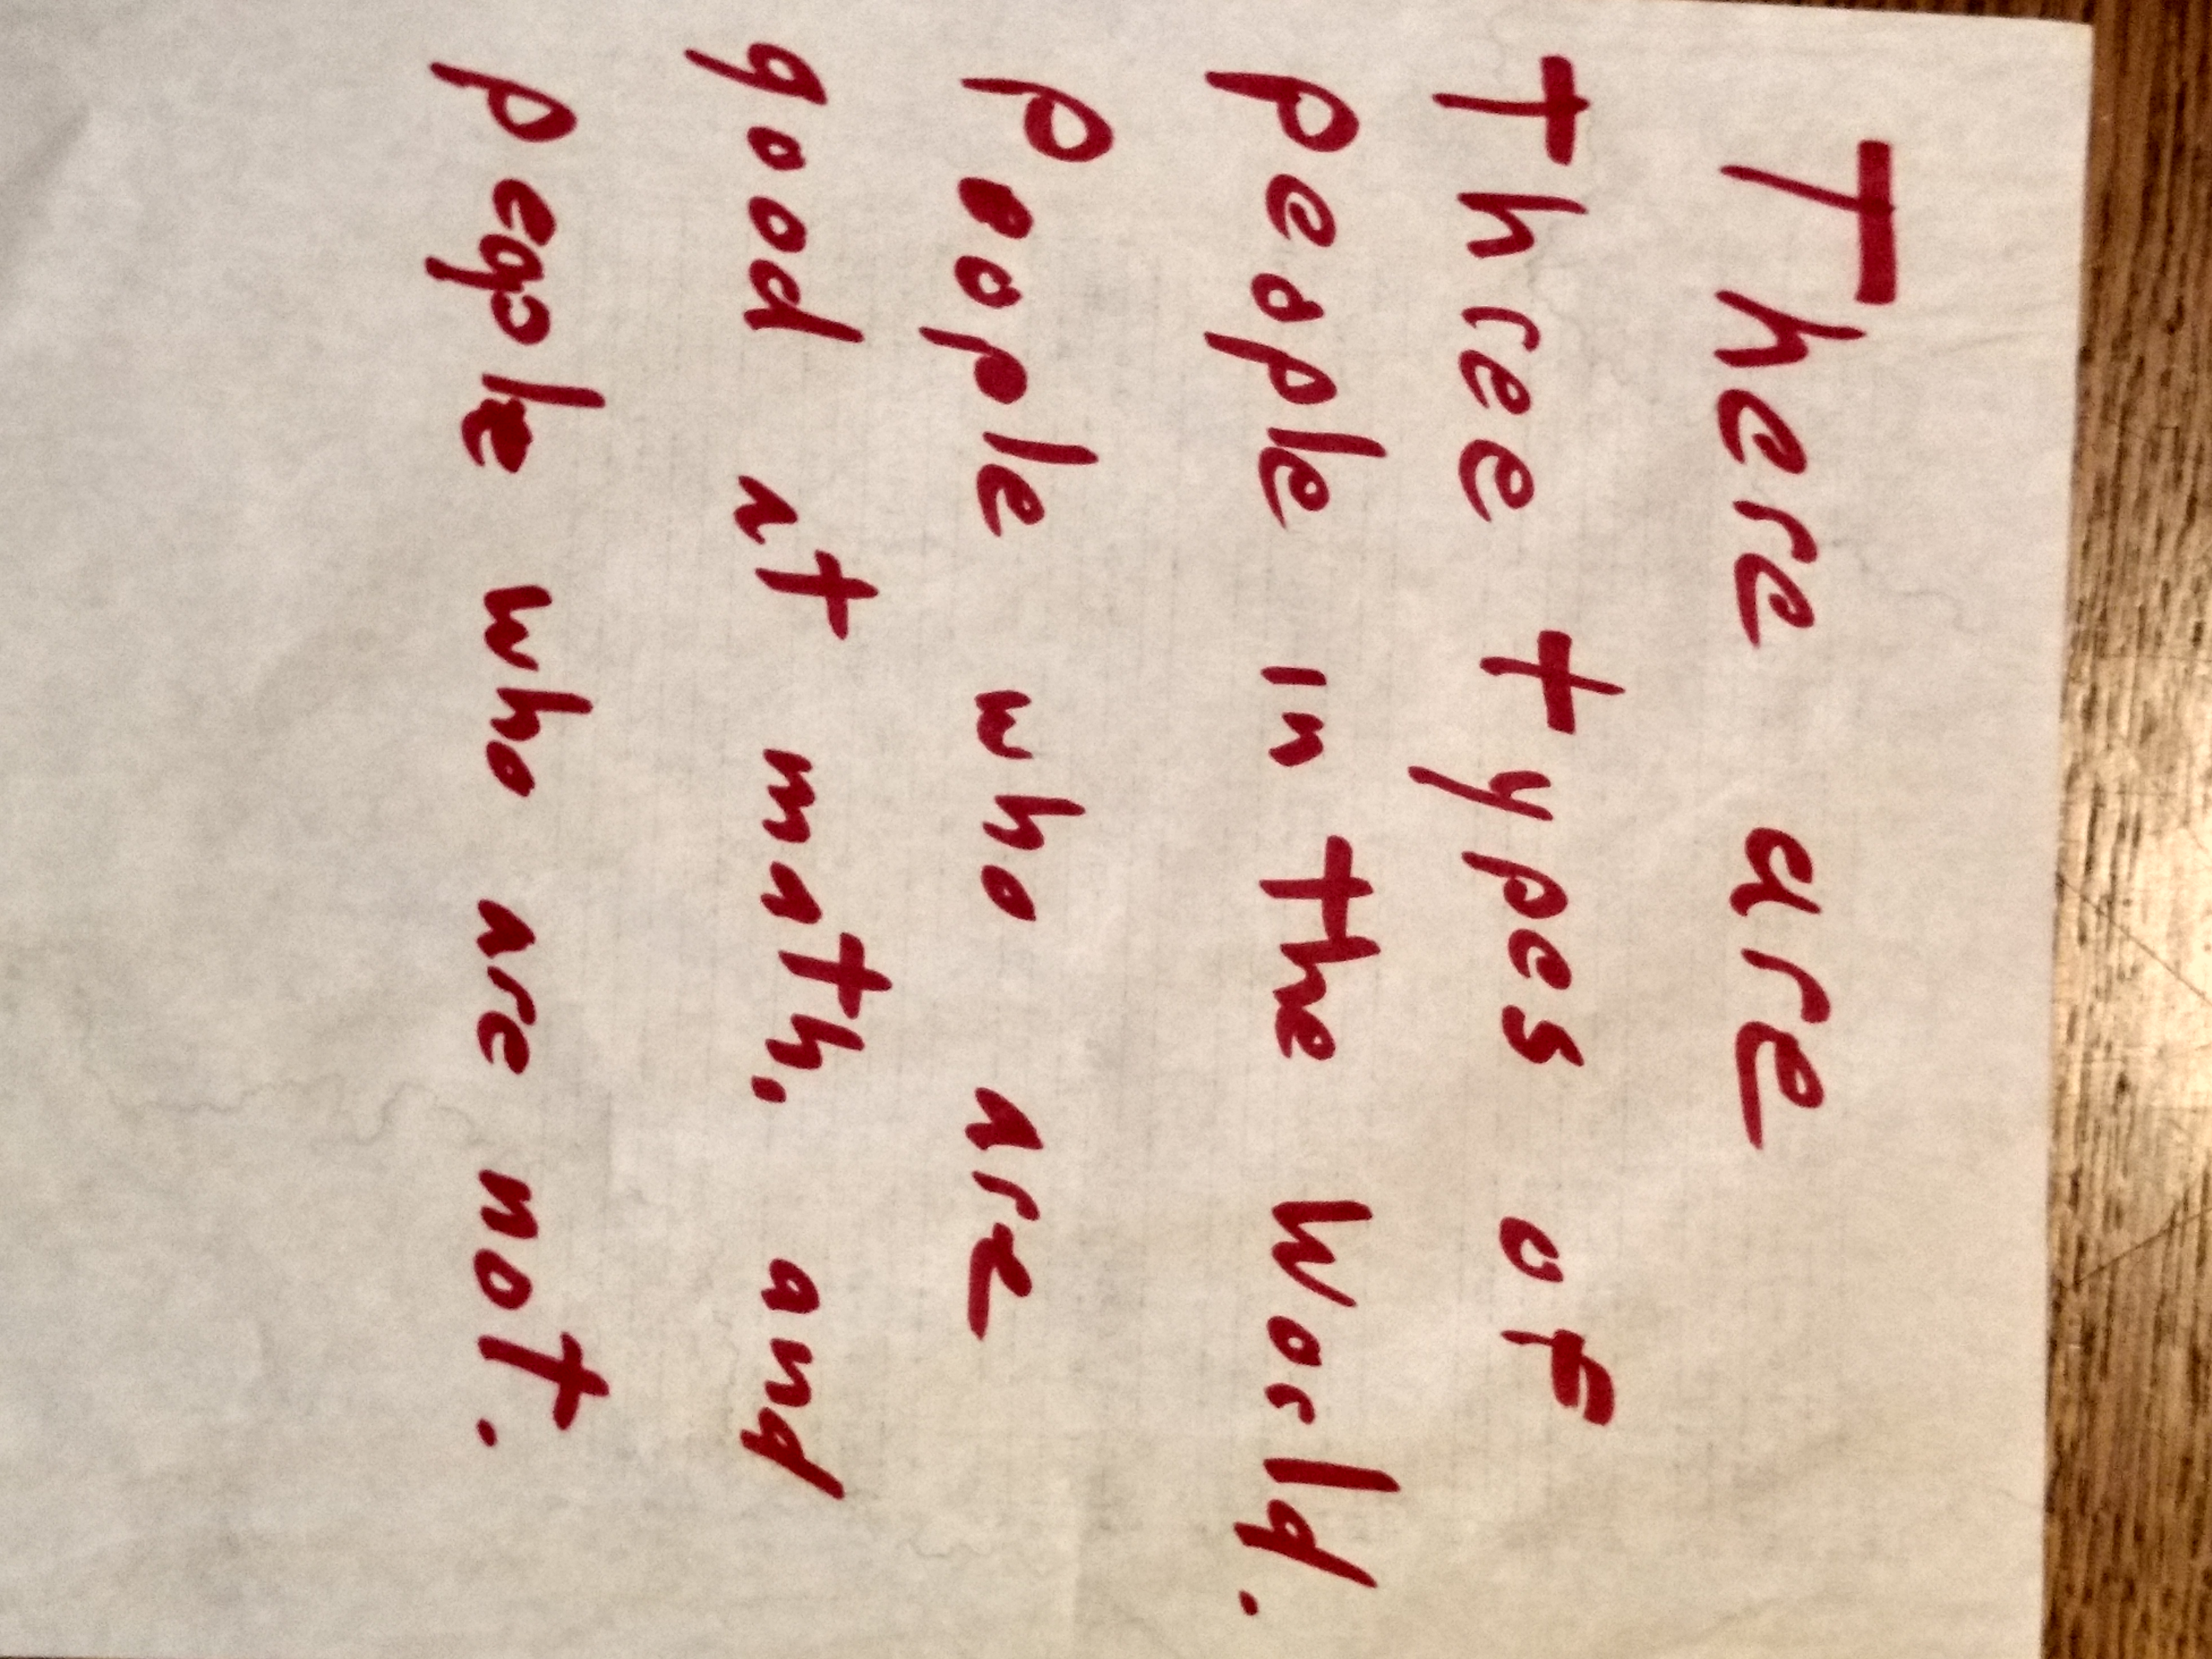 There are
Three types of
people in the World.
People who are
good at math, and
people who are not.